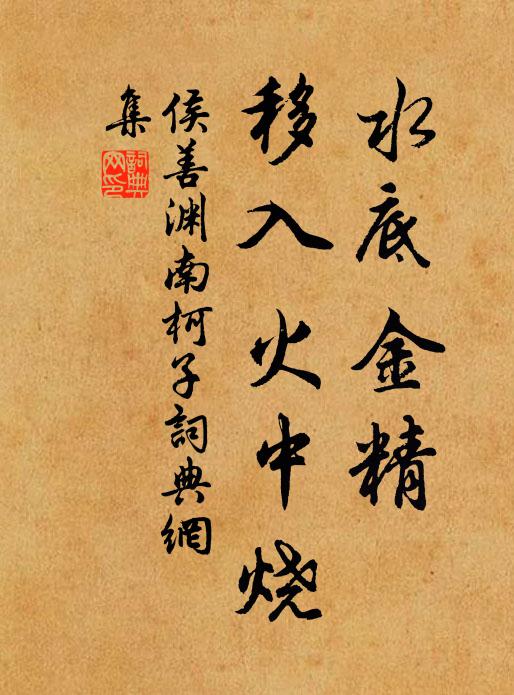 水底金精
移入火中烧
侯善渊南柯子詞典網
集
詞典
网印